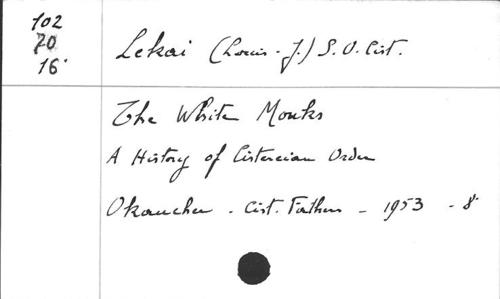 102
70
16°
Lekai (Louis-J.) S. O. Cist.
The White Monks
A History of Cistercian Order
Okauchee - Cist. Fathers - 1953 - 8°